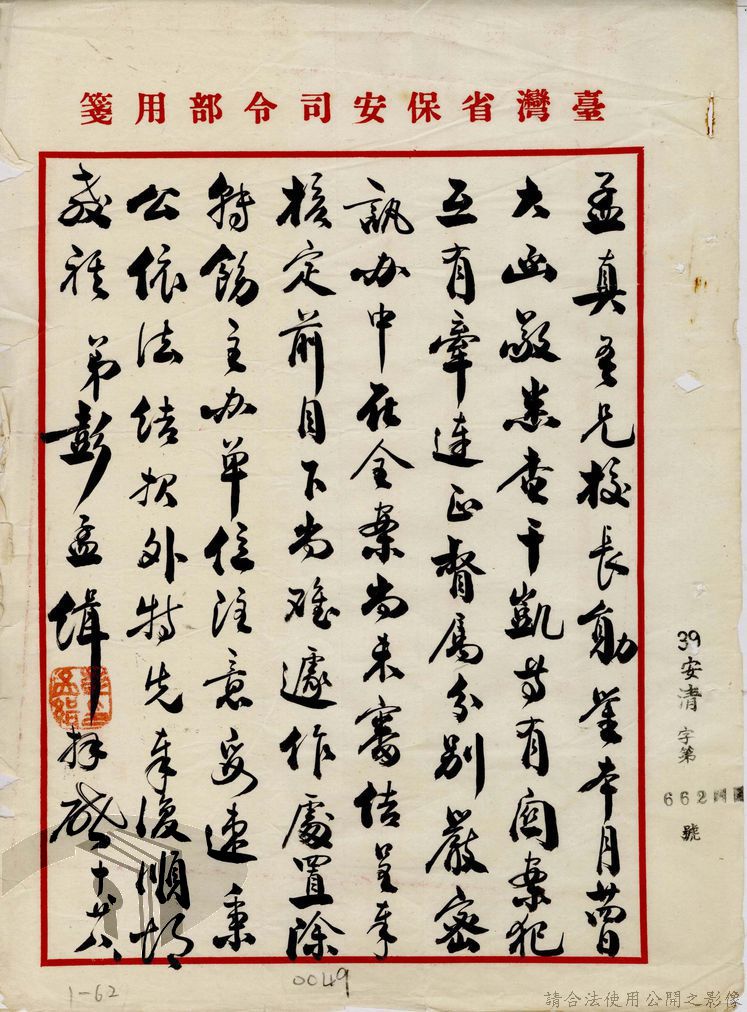 臺灣省保安司令部用箋
孟真吾兄校長勛鑒本月廿四日
大函敬悉查于凱等有關案犯
互有牽連正督屬分別嚴密
訊办中在全案尚未審結呈奉
核定前目下尚難遽作處置除
轉飭主办單位注意妥速秉
公依法結报外特先奉復順頌
教祺 弟彭孟緝拜啟 十廿八
39安清字第662號
1-62
0049
請合法使用公開之影像